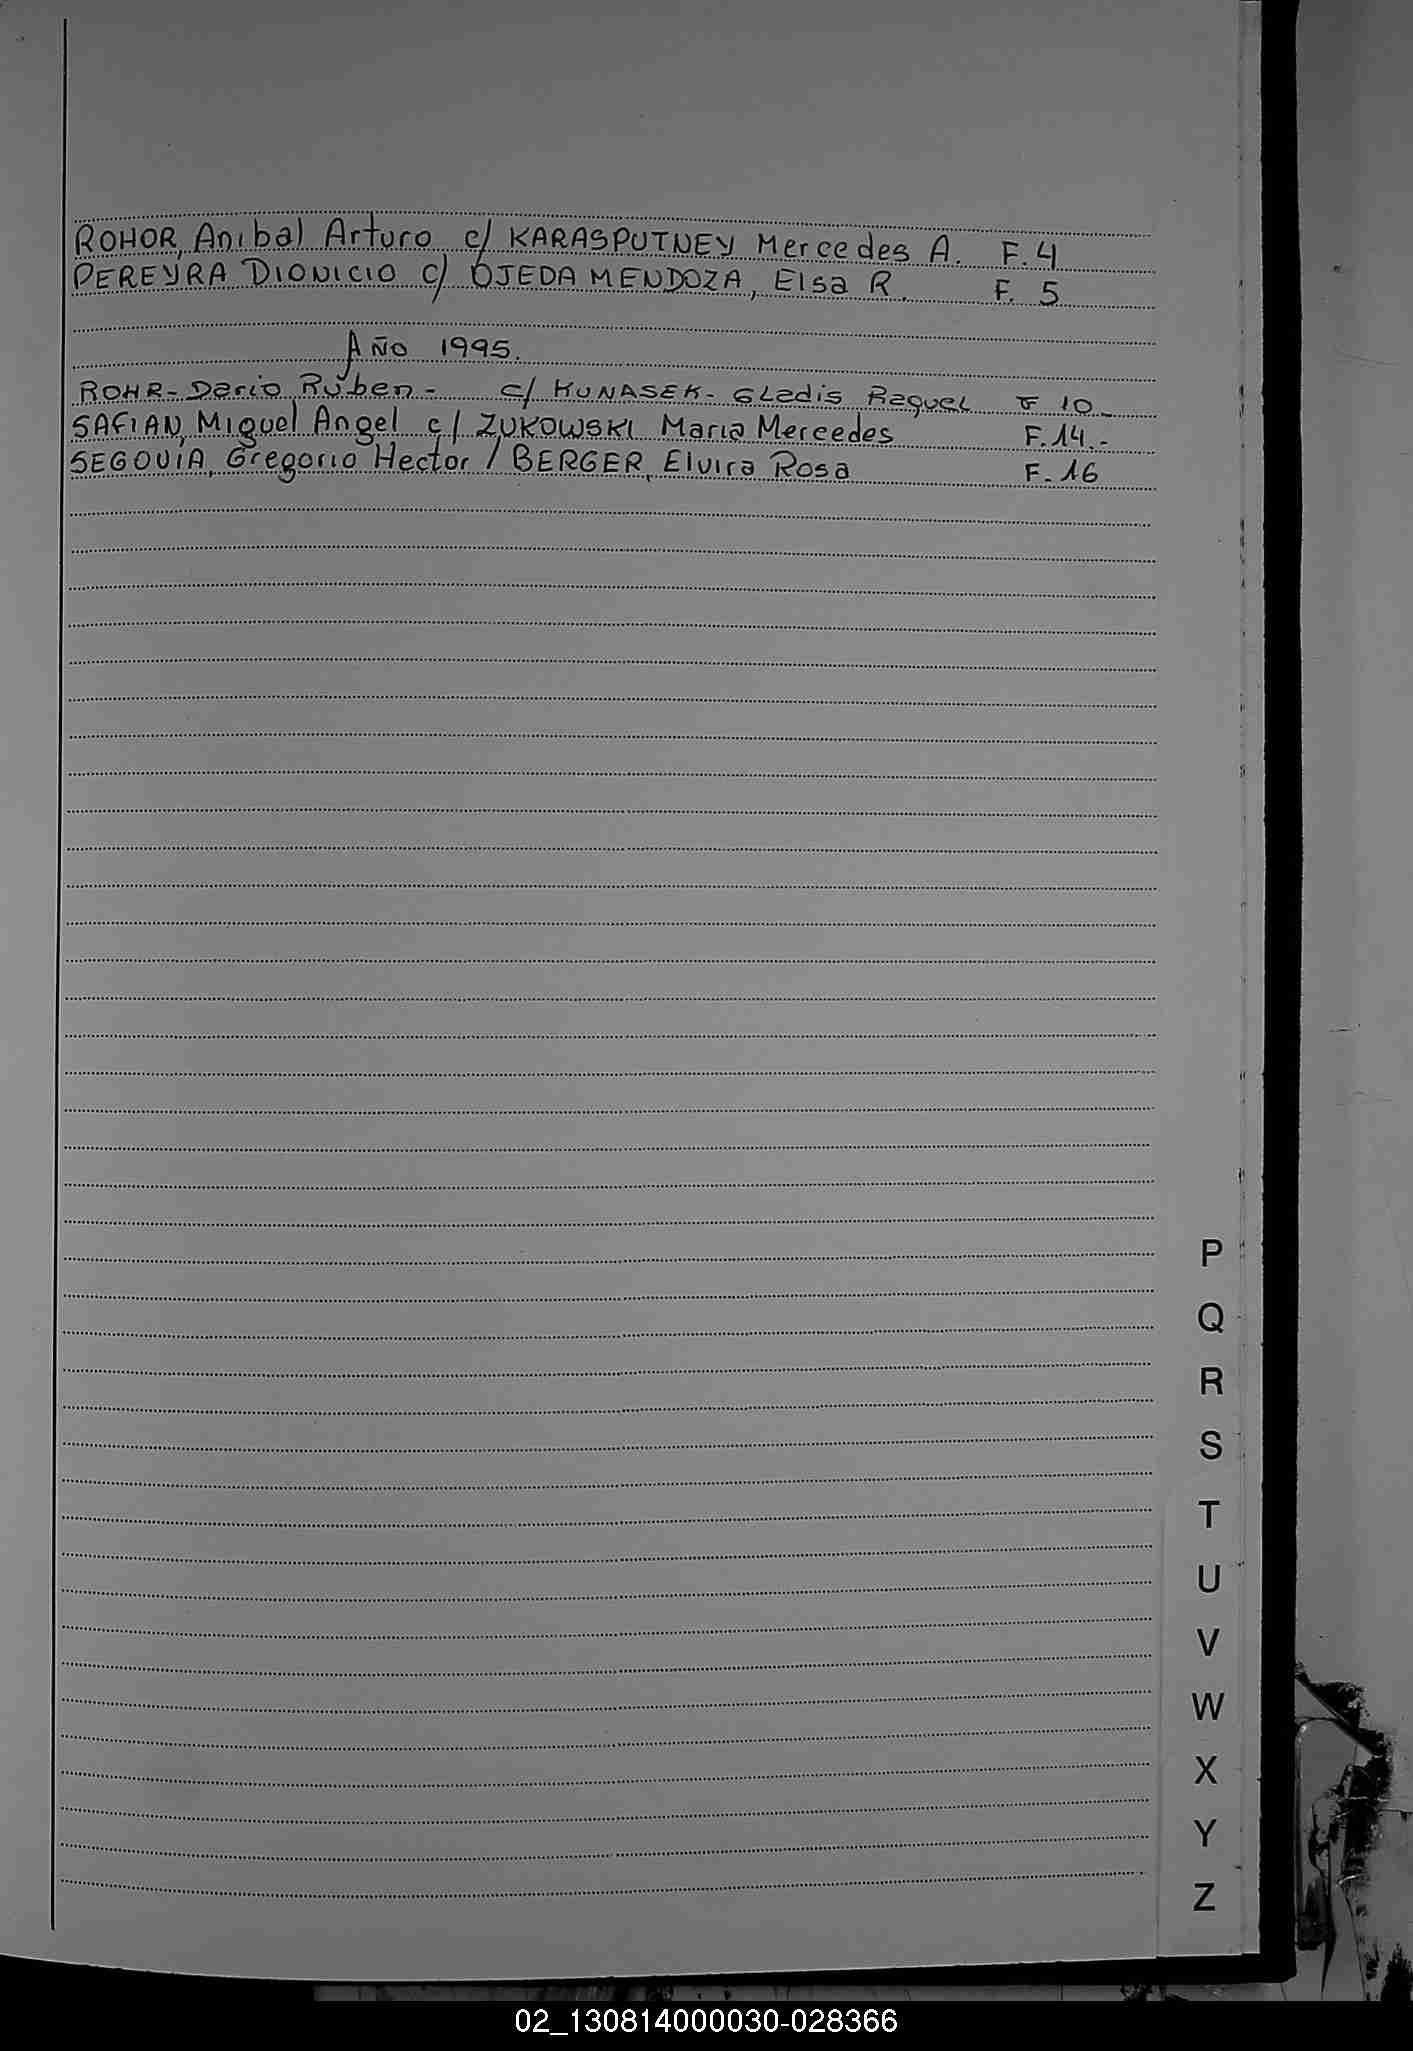 ROHOR, Anibal Arturo c/ KARASPUTNEY Mercedes A. F. 4
PEREYRA DIONICIO c/ OJEDA MENDOZA, Elsa R. F. 5
AÑO 1995.
ROHR- Dario Ruben- c/ KUNASEK- GLadis RaqueL F 10-
SAFIAN, Miguel Angel c/ ZUKOWSKI Maria Mercedes F. 14.-
SEGOVIA, Gregorio Hector / BERGER, Elvira Rosa F. 16
P
Q
R
S
T
U
V
W
X
Y
Z
02_130814000030-028366